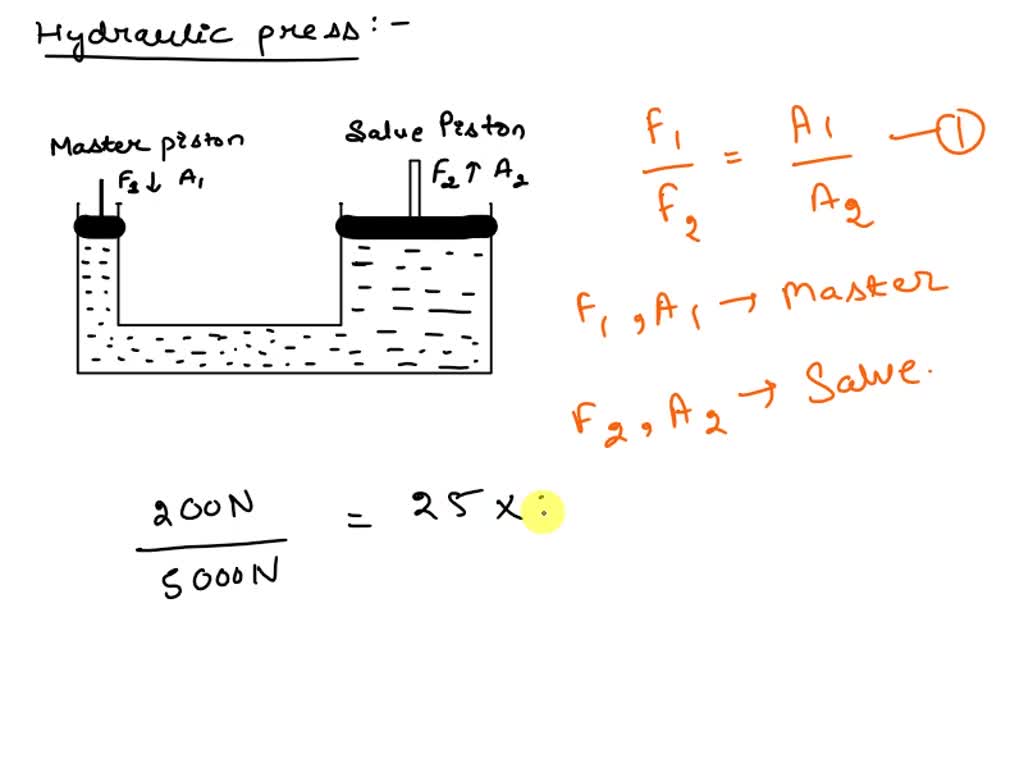 Hydraulic press:-
Master piston
F1↓ A1
Salve Piston
F2↑ A2
F1/F2 = A1/A2 —①
F1, A1 → Master
F2, A2 → Salve.
200N/5000N = 25 ×